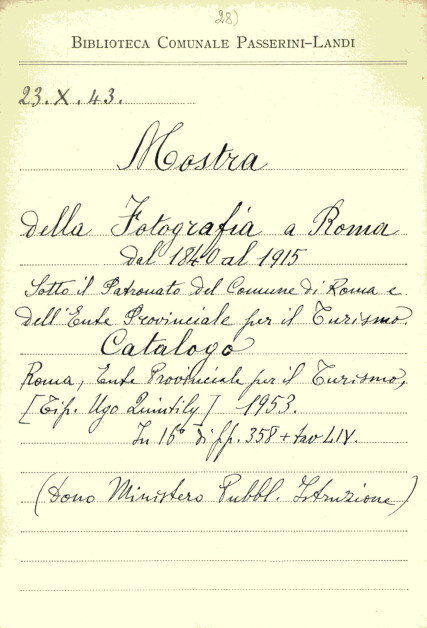 28)
BIBLIOTECA COMUNALE PASSERINI-LANDI
23.X.43.
Mostra
della Fotografia a Roma
dal 1840 al 1915
Sotto il Patronato del Comune di Roma e
dell'Ente Provinciale per il Turismo.
Catalogo
Roma, Ente Provinciale per il Turismo,
[Tip. Ugo Quintily] 1953.
In 16° di pp. 358 + tav LIV.
(Dono Ministero Pubbl. Istruzione)